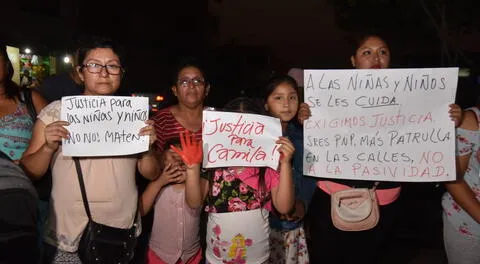 Justicia para
las niñas y niños
NO NO! MATEN.
¡Justicia
para
Camila!
A LAS NIÑAS Y NIÑOS
SE LES CUIDA.
EXIGIMOS JUSTICIA.
SRES PNP, MÁS PATRULLA
EN LAS CALLES, NO
A LA PASIVIDAD.